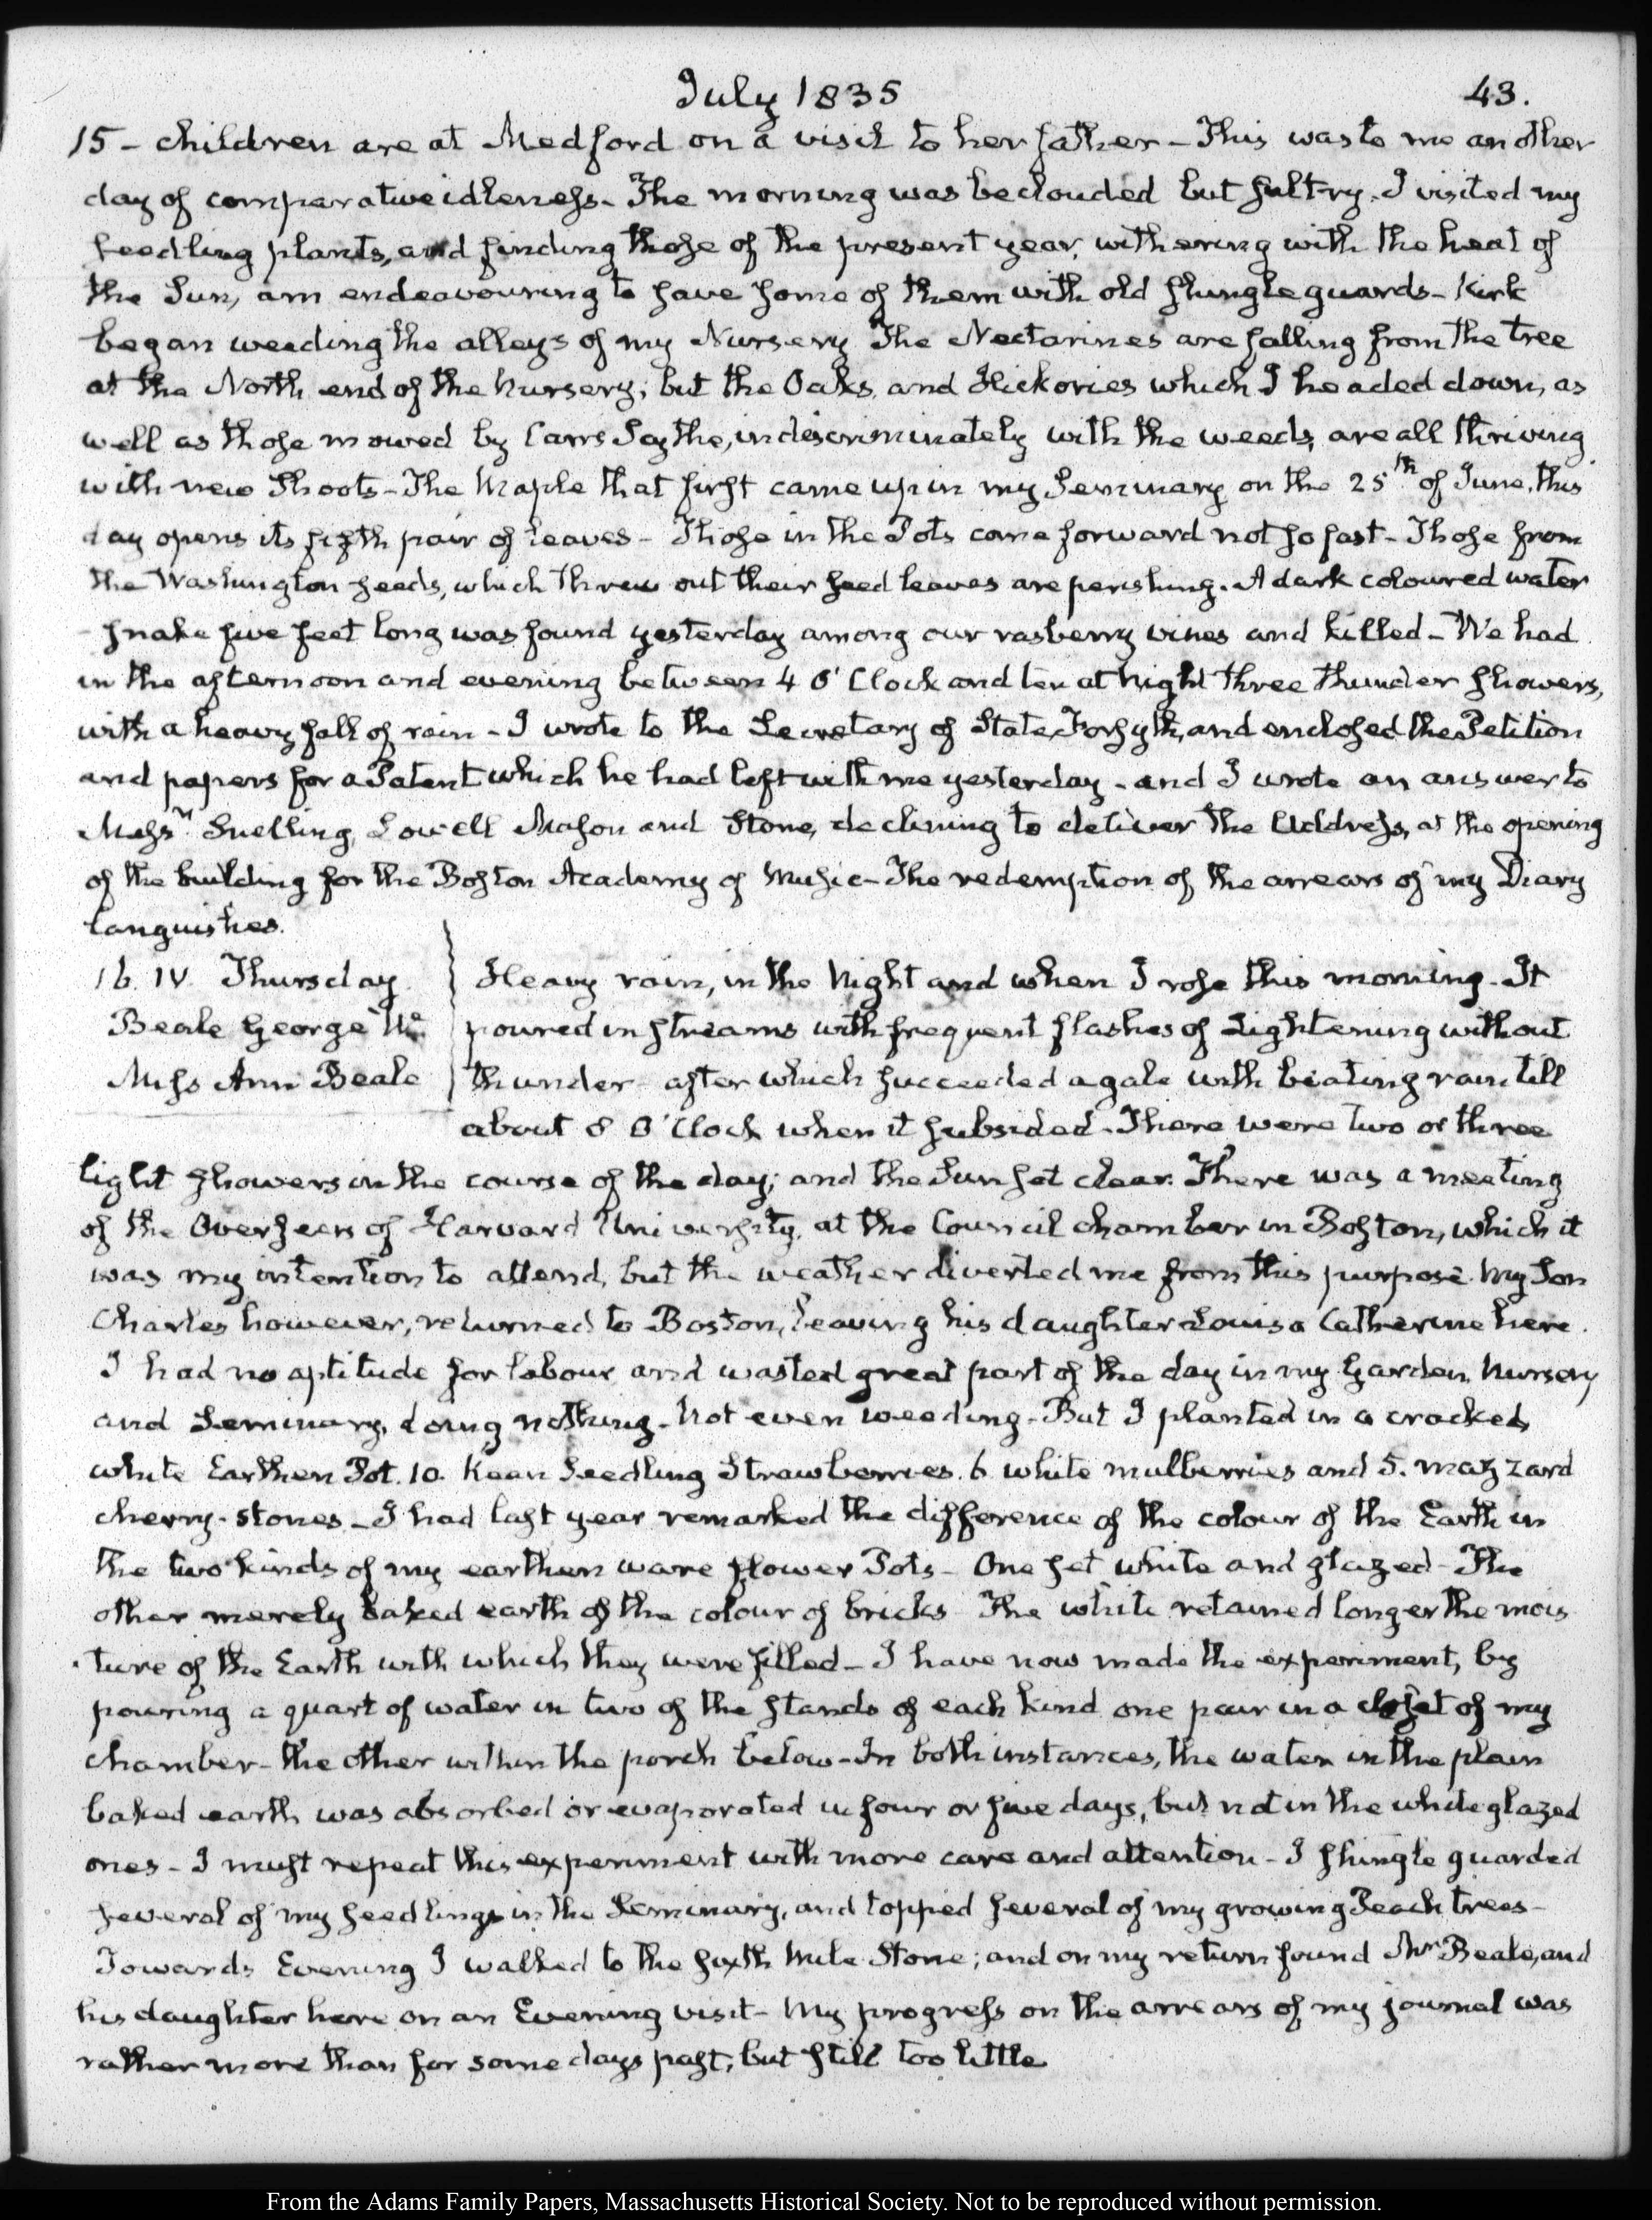 July 1835
43.
15 - children are at Medford on a visit to her father - This was to me another
day of comparative idleness - The morning was beclouded but sultry. I visited my
seedling plants, and finding those of the present year, withering with the heat of
the Sun, am endeavouring to save some of them with old shingle guards - Kirk
began weeding the alleys of my Nursery The Nectarines are falling from the tree
at the North end of the Nursery; but the Oaks, and Hickories which I headed down, as
well as those mowed by Carrs Scythe, indiscriminately with the weeds, are all thriving
with new Shoots - The Maple that first came up in my Seminary on the 25th of June, this
day opens its fifth pair of leaves - Those in the Pots come forward not so fast - Those from
the Washington seeds, which threw out their seed leaves are perishing. A dark coloured water
snake five feet long was found yesterday among our rasberry vines and killed - We had
in the afternoon and evening between 4 O'Clock and ten at Night three thunder showers,
with a heavy fall of rain - I wrote to the Secretary of State, Forsyth, and enclosed the Petition
and papers for a Patent which he had left with me yesterday - and I wrote an answer to
Messrs Snelling, Lowell Mason and Stone, declining to deliver the Address, at the opening
of the building for the Boston Academy of Music - The redemption of the arrears of my Diary
languishes.
16. IV. Thursday
Beale George W.
Miss Ann Beale
Heavy rain, in the Night and when I rose this morning. It
poured in streams with frequent flashes of Lightening without
thunder - after which succeeded a gale with beating rain till
about 8 O'Clock when it subsided. There were two or three
light showers in the course of the day; and the Sun set clear. There was a meeting
of the Overseers of Harvard University, at the Council chamber in Boston, which it
was my intention to attend, but the weather diverted me from this purpose. My Son
Charles however, returned to Boston, leaving his daughter Louisa Catherine here.
I had no aptitude for labour and wasted great part of the day in my Garden, Nursery
and Seminary, doing nothing - Not even weeding - But I planted in a cracked
white Earthen Pot. 10. Kean Seedling Strawberries. 6 white mulberries and 5. mazzard
cherry-stones - I had last year remarked the difference of the colour of the Earth in
the two kinds of my earthen ware flower Pots - One set white and glazed - The
other merely baked earth of the colour of bricks The white retained longer the mois
ture of the Earth with which they were filled - I have now made the experiment, by
pouring a quart of water in two of the stands of each kind one pair in a closet of my
chamber - the other within the porch below - In both instances, the water in the plain
baked earth was absorbed or evaporated in four or five days, but not in the white glazed
ones - I must repeat this experiment with more care and attention - I shingle guarded
several of my seedlings in the Seminary, and topped several of my growing Peach trees -
Towards Evening I walked to the sixth Mile Stone; and on my return found Mr Beale, and
his daughter here on an Evening visit - My progress on the arrears of my journal was
rather more than for some days past, but still too little
From the Adams Family Papers, Massachusetts Historical Society. Not to be reproduced without permission.